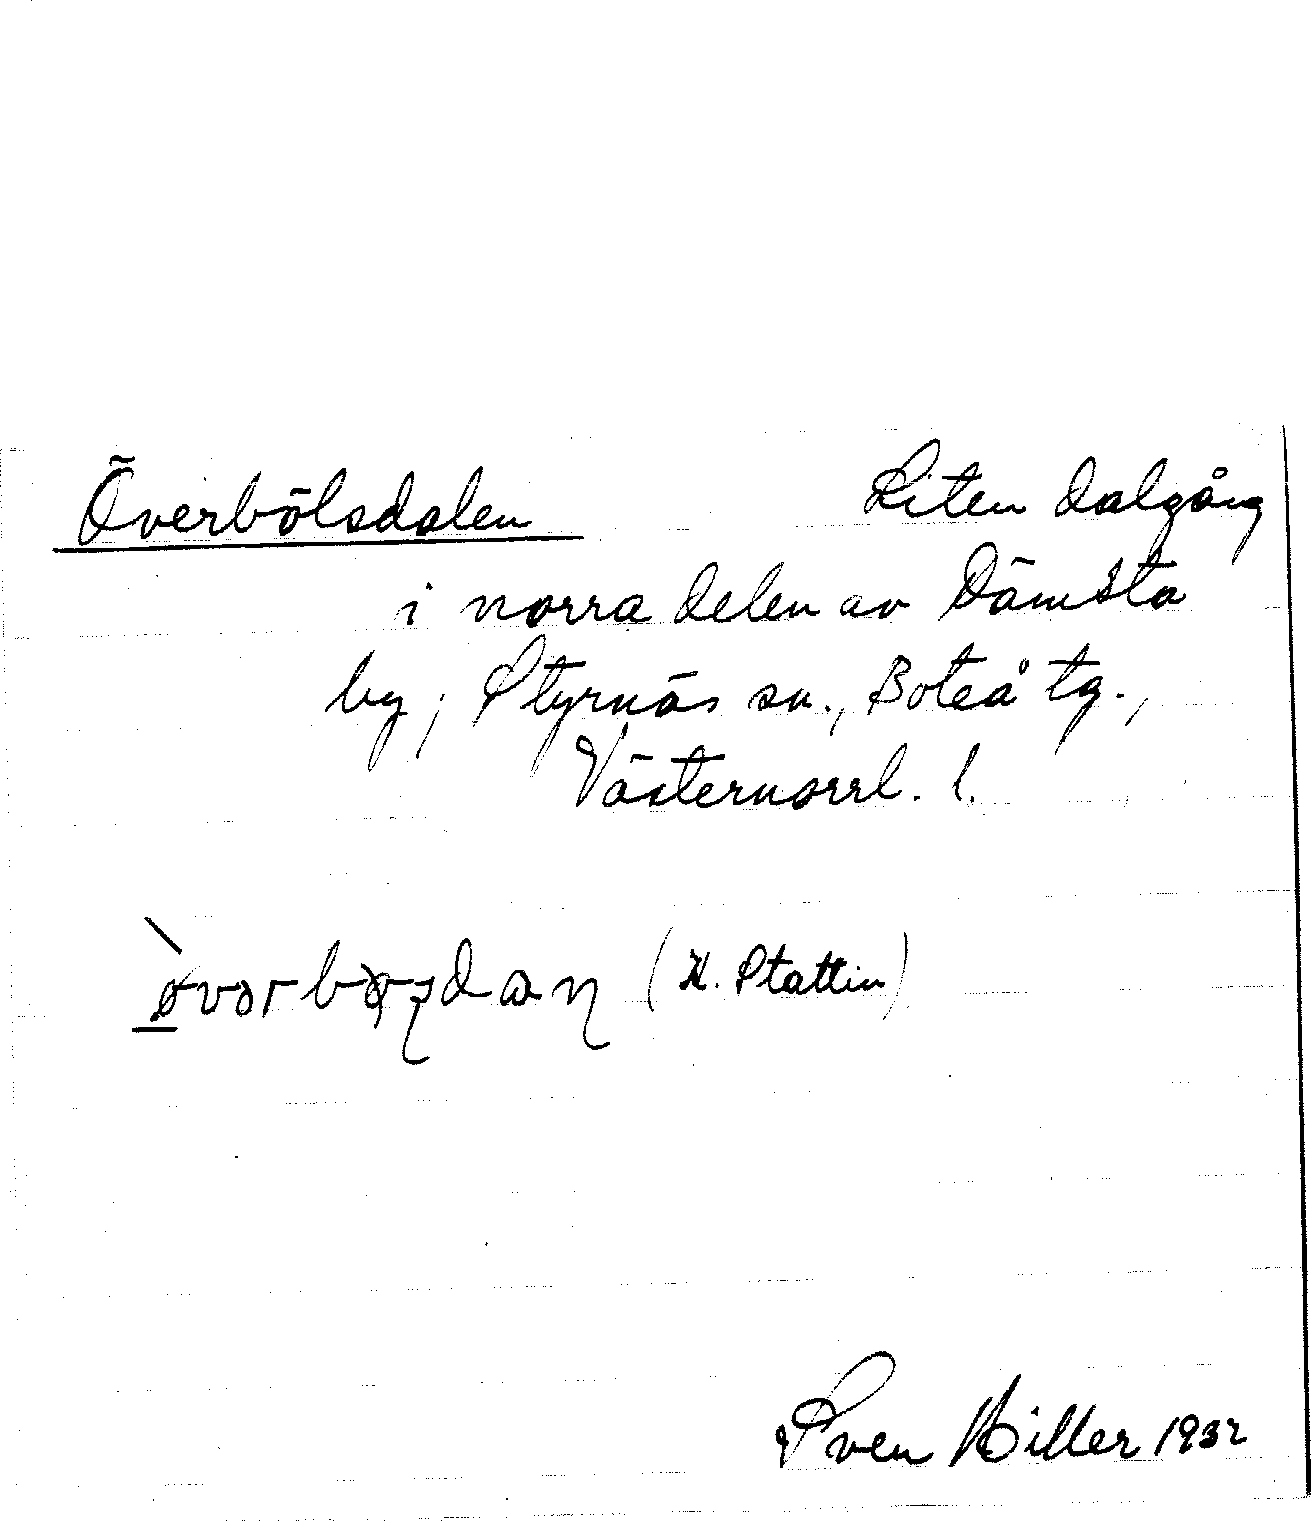 Överbölsdalen Liten dalgång
i norra delen av Dämsta
by, Styrnäs sn., Boteå tg.,
Västernorrl. l.
(K. Stattin)
Sven Hiller 1932